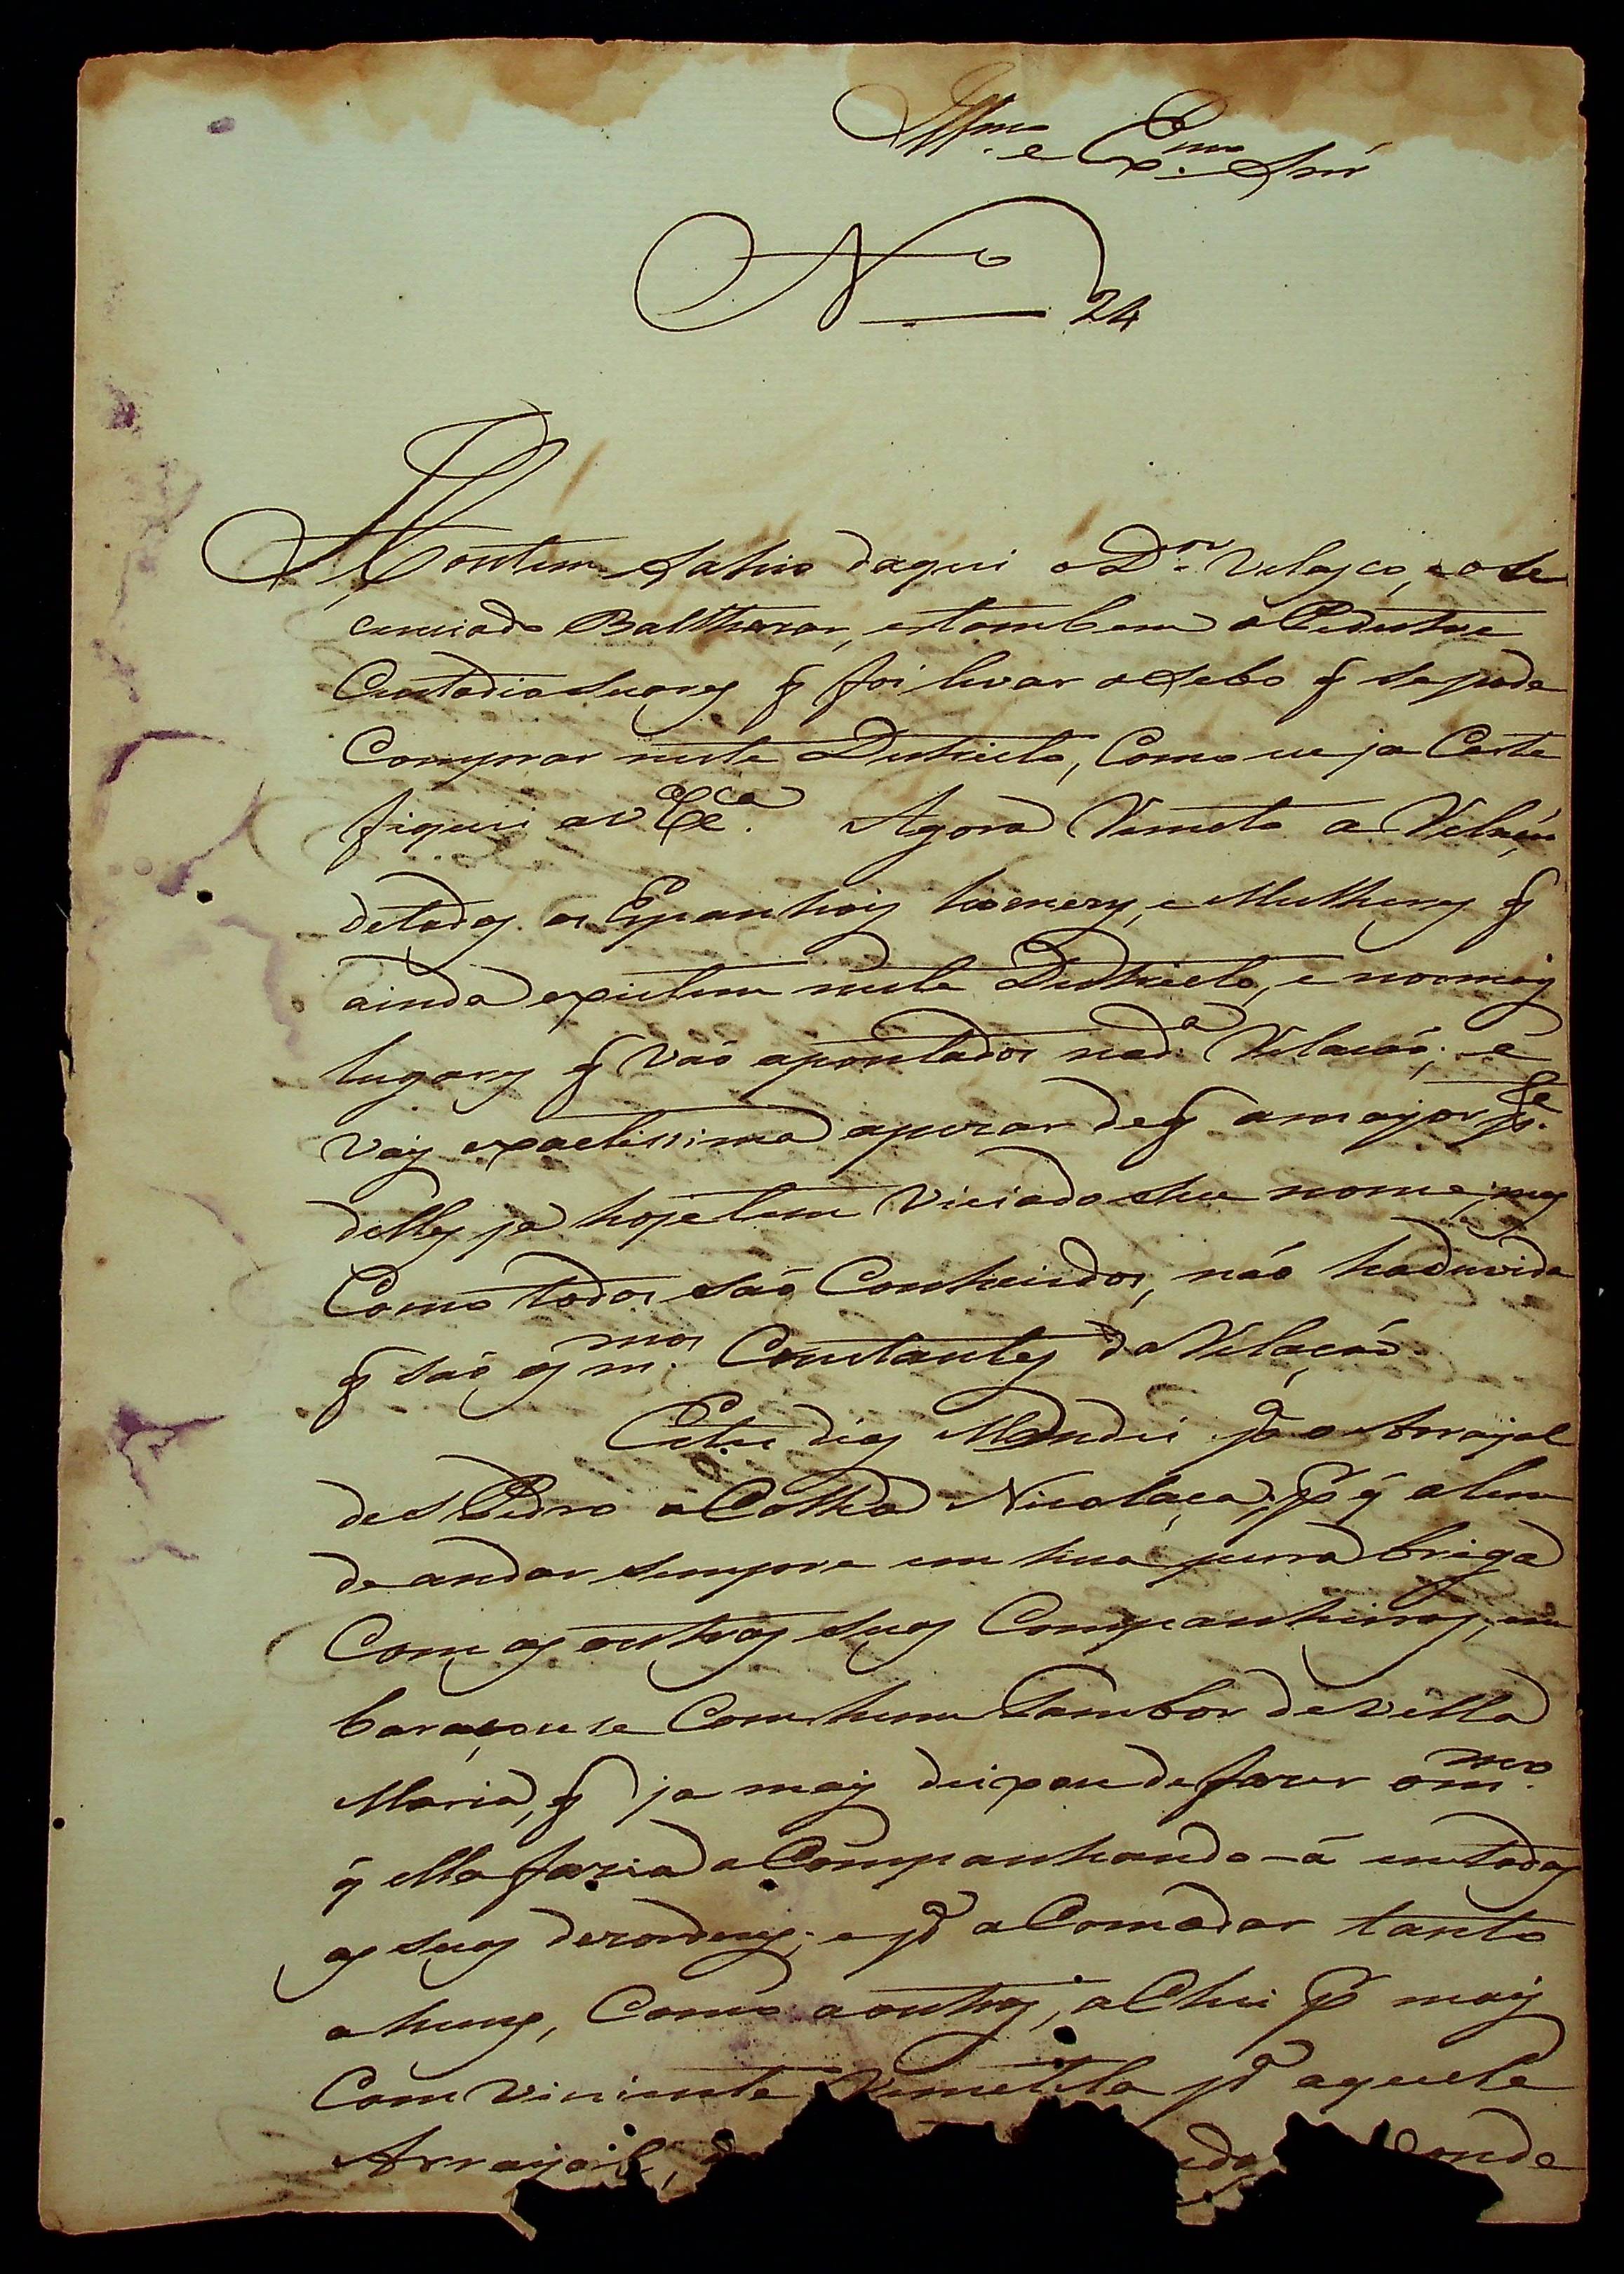 Illmo. e Exmo. Snr̃
No. 24
Hontem Sahio daqui o Dor. Velasco, e o Se
cunciado Balthezar, e tambem o Pedestre
Custodio Suares q̃ foi levar o Sebo q̃ se pode
Comprar neste Destricto, Como eu ja Certe
fiquei a v Exca. Agora Remeto a Relaçaõ,
de todos os Espanhois homens, e Mulheres q̃
ainda existem neste Destricto, e nos mais
lugares q̃ vaõ apontados na da. Relaçaõ; e
vay exactissima apezar de q̃ a mayor pte.
delles ja hoje tem Viciado seu nome, mas
Como todos saõ Conhecidos, naõ ha duvida
q̃ saõ os mmos. Constantes da Relaçaõ.
Estes dias Mandei pa. o Arrayal
de S Pedro a Colha Nicolaça; p̃ q̃ alem
de andar sempre em huã pura briga
Com as outras suas Companheiras, em
baraçouse Com hum Tambor de Villa
Maria, q̃ ja mais deixou de fazer o mmo.
q̃ ella fazia aCompanhando-a em todas
as suas dezordens; e pa. aComodar tanto
a huns, Como a outros, aChei p̃ mais
Com viniente Remetella pa. aquele
Arrayal, onde